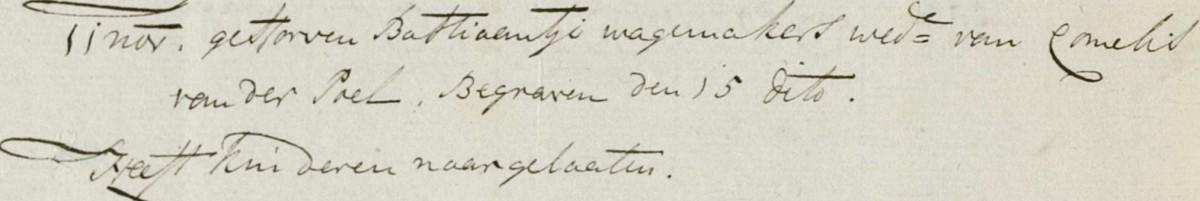 11 nov. gestorven Bastiaantje wagemakers wede= van Cornelis
van der Poel, Begraven den 15 dito.
Heeft kinderen naargelaaten.